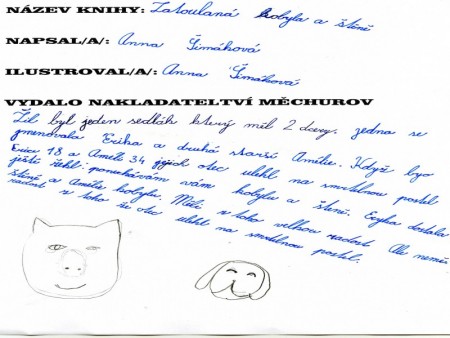 NÁZEV KNIHY: Zatoulaná kobyla a štěně
NAPSAL/A/: Anna Šimáková
ILUSTROVAL/A/: Anna Šimáková
VYDALO NAKLADATELTVÍ MĚCHUROV
Žil byl jeden sedlák který měl 2 dcery. jedna se
jmenovala Erika a druhá starší Amélie. Když byo
Erice 18 a Amélii 34 jejich otec ulehl na smrtelnou postel
ještě řekl: ponechávám vám kobylu a štěně. Eryka dostala
štěně a Amélie kobylku. Měli z toho velkou radost. Ale neměli
radost z toho že otec ulehl na smrtelnou postel.